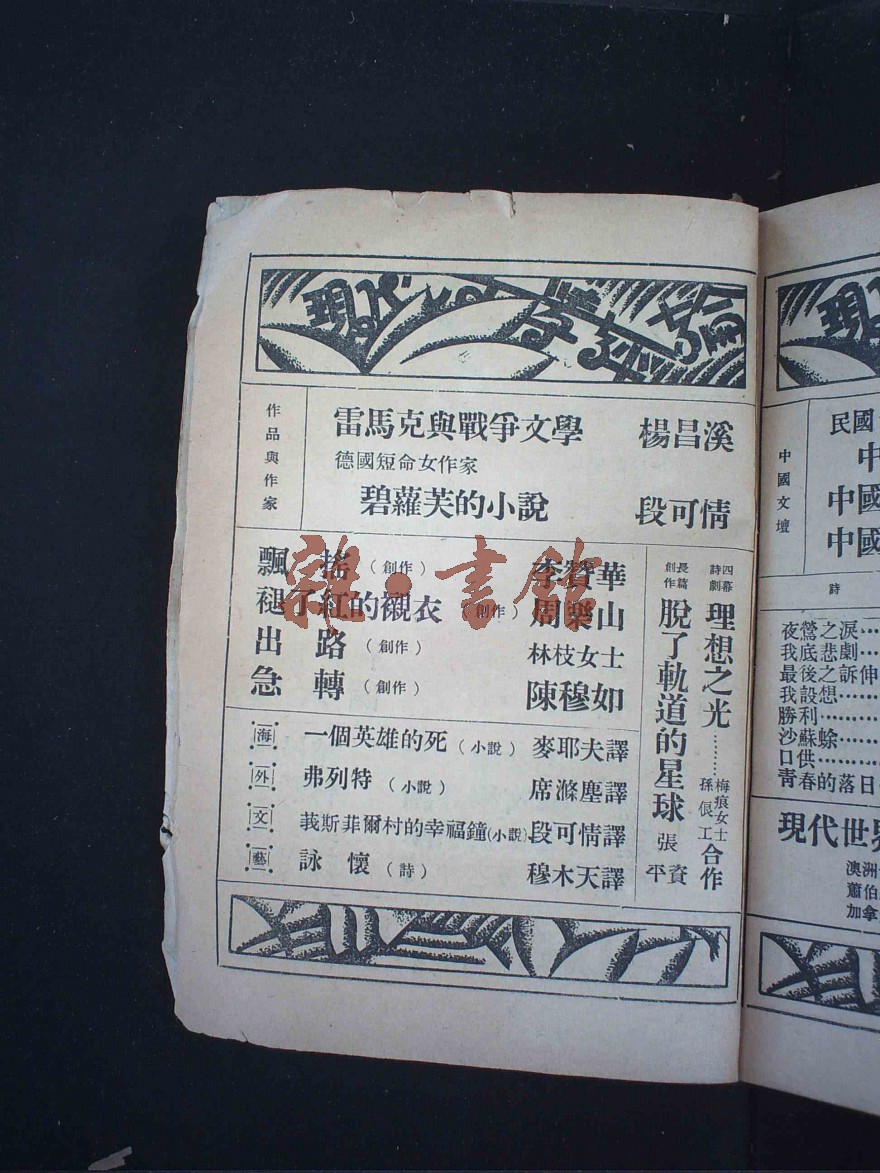 現代文學
作品與作家
雷馬克與戰爭文學 楊昌溪
德國短命女作家
碧蘿芙的小說 段可情
飄搖(創作) 李贊華
褪了紅的襯衣(創作) 周樂山
出路(創作) 林枝女士
急轉(創作) 陳穆如
四幕詩劇 理想之光……… 梅痕女士 孫俍工 合作
長篇創作 脫了軌道的星球 張資平
海外文藝
一個英雄的死(小說) 麥耶夫譯
弗列特(小說) 席滌塵譯
莪斯菲爾村的幸福鐘(小說) 段可情譯
詠懷(詩) 穆木天譯
雜·書館
現
中國文壇
民國
中
中國
中國
詩
夜鶯之淚
我底悲劇
最後之訴伸
我設想
勝利
沙蘇蜍
口供
青春的落日
現代世界
澳洲
蕭伯
加拿